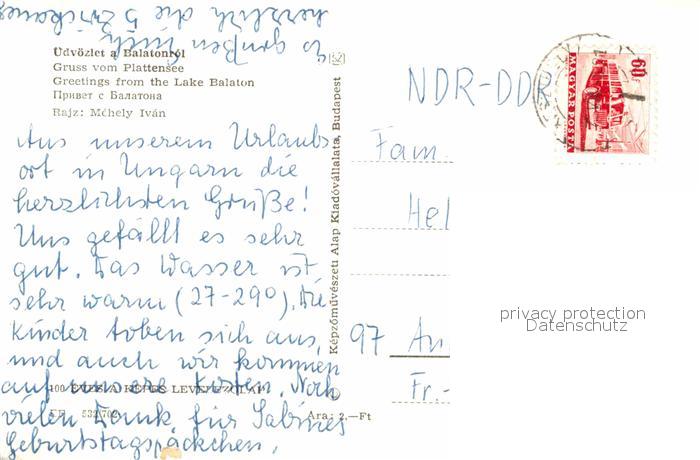 Üdvözlet a Balatonról
Gruss vom Plattensee
Greetings from the Lake Balaton
Привет с Балатона
Rajz: Méhely Iván
Aus unserem Urlaubs
ort in Ungarn die
herzlichsten Grüße!
Uns gefällt es sehr
gut. Das Wasser ist
sehr warm (27-29°). Die
Kinder toben sich aus,
und auch wir kommen
auf unsere Kosten. Noch
vielen Dank für Sabines
Geburtstagspäckchen,
Es grüßen Euch
herzlich die 5 Zwickauer
100 ÉVES A KÉPES LEVELEZŐLAP
532/702
Ara: 2.—Ft
Képzőművészeti Alap Kiadóvállalata, Budapest
NDR-DDR
Fam.
Hel
97 An
Fr.-
60f
MAGYAR POSTA
privacy protection
Datenschutz